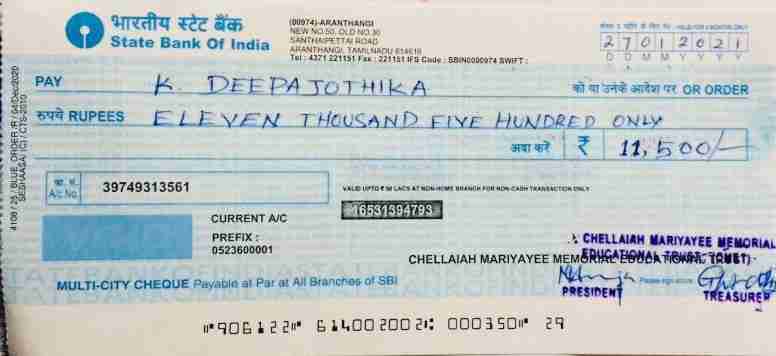 भारतीय स्टेट बैंक
State Bank Of India
(00974)-ARANTHANGI
NEW NO.50, OLD NO.30
SANTHAIPETTAI ROAD
ARANTHANGI, TAMILNADU 614616
Tel : 4371 221151 Fax : 221151 IFS Code : SBIN0000974 SWIFT :
27012021
D D M M Y Y Y Y
PAY K. DEEPAJOTHIKA को या उनके आदेश पर OR ORDER
रुपये RUPEES ELEVEN THOUSAND FIVE HUNDRED ONLY
अदा करें ₹ 11,500/-
खा. सं.
A/c No. 39749313561
VALID UPTO ₹ 50 LACS AT NON-HOME BRANCH FOR NON-CASH TRANSACTION ONLY
16531394793
CURRENT A/C
PREFIX :
0523600001
CHELLAIAH MARIYAYEE MEMORIAL EDUCATIONAL TRUST
CHELLAIAH MARIYAYEE MEMORIAL
EDUCATIONAL TRUST
MULTI-CITY CHEQUE Payable at Par at All Branches of SBI
Please sign above
PRESIDENT TREASURER
⑈906122⑈ 614002002⑆ 000350⑈ 29